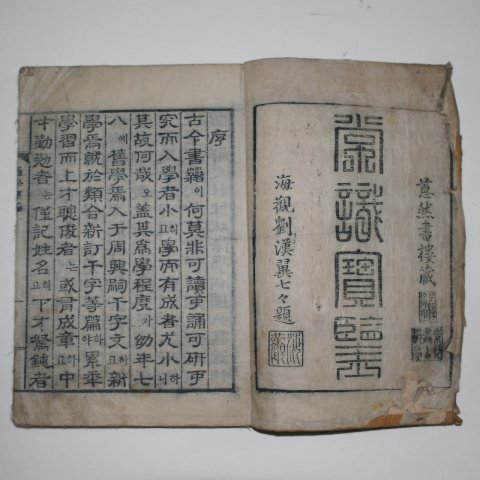 蕙然書樓藏
常識寶鑑
海觀劉漢翼七々題
序
古今書籍이何莫非可讀可誦可研可
究而入學者小하고學而有成者尤小하니
其故何哉오蓋其爲學程度가幼年七
八에舊學焉入于周興嗣千字文하고新
學焉就於類合新訂千字等篇하야累年
學習而上才聰俊者는或有成章하고中
才勤勉者는僅記姓名하고下才駑鈍者